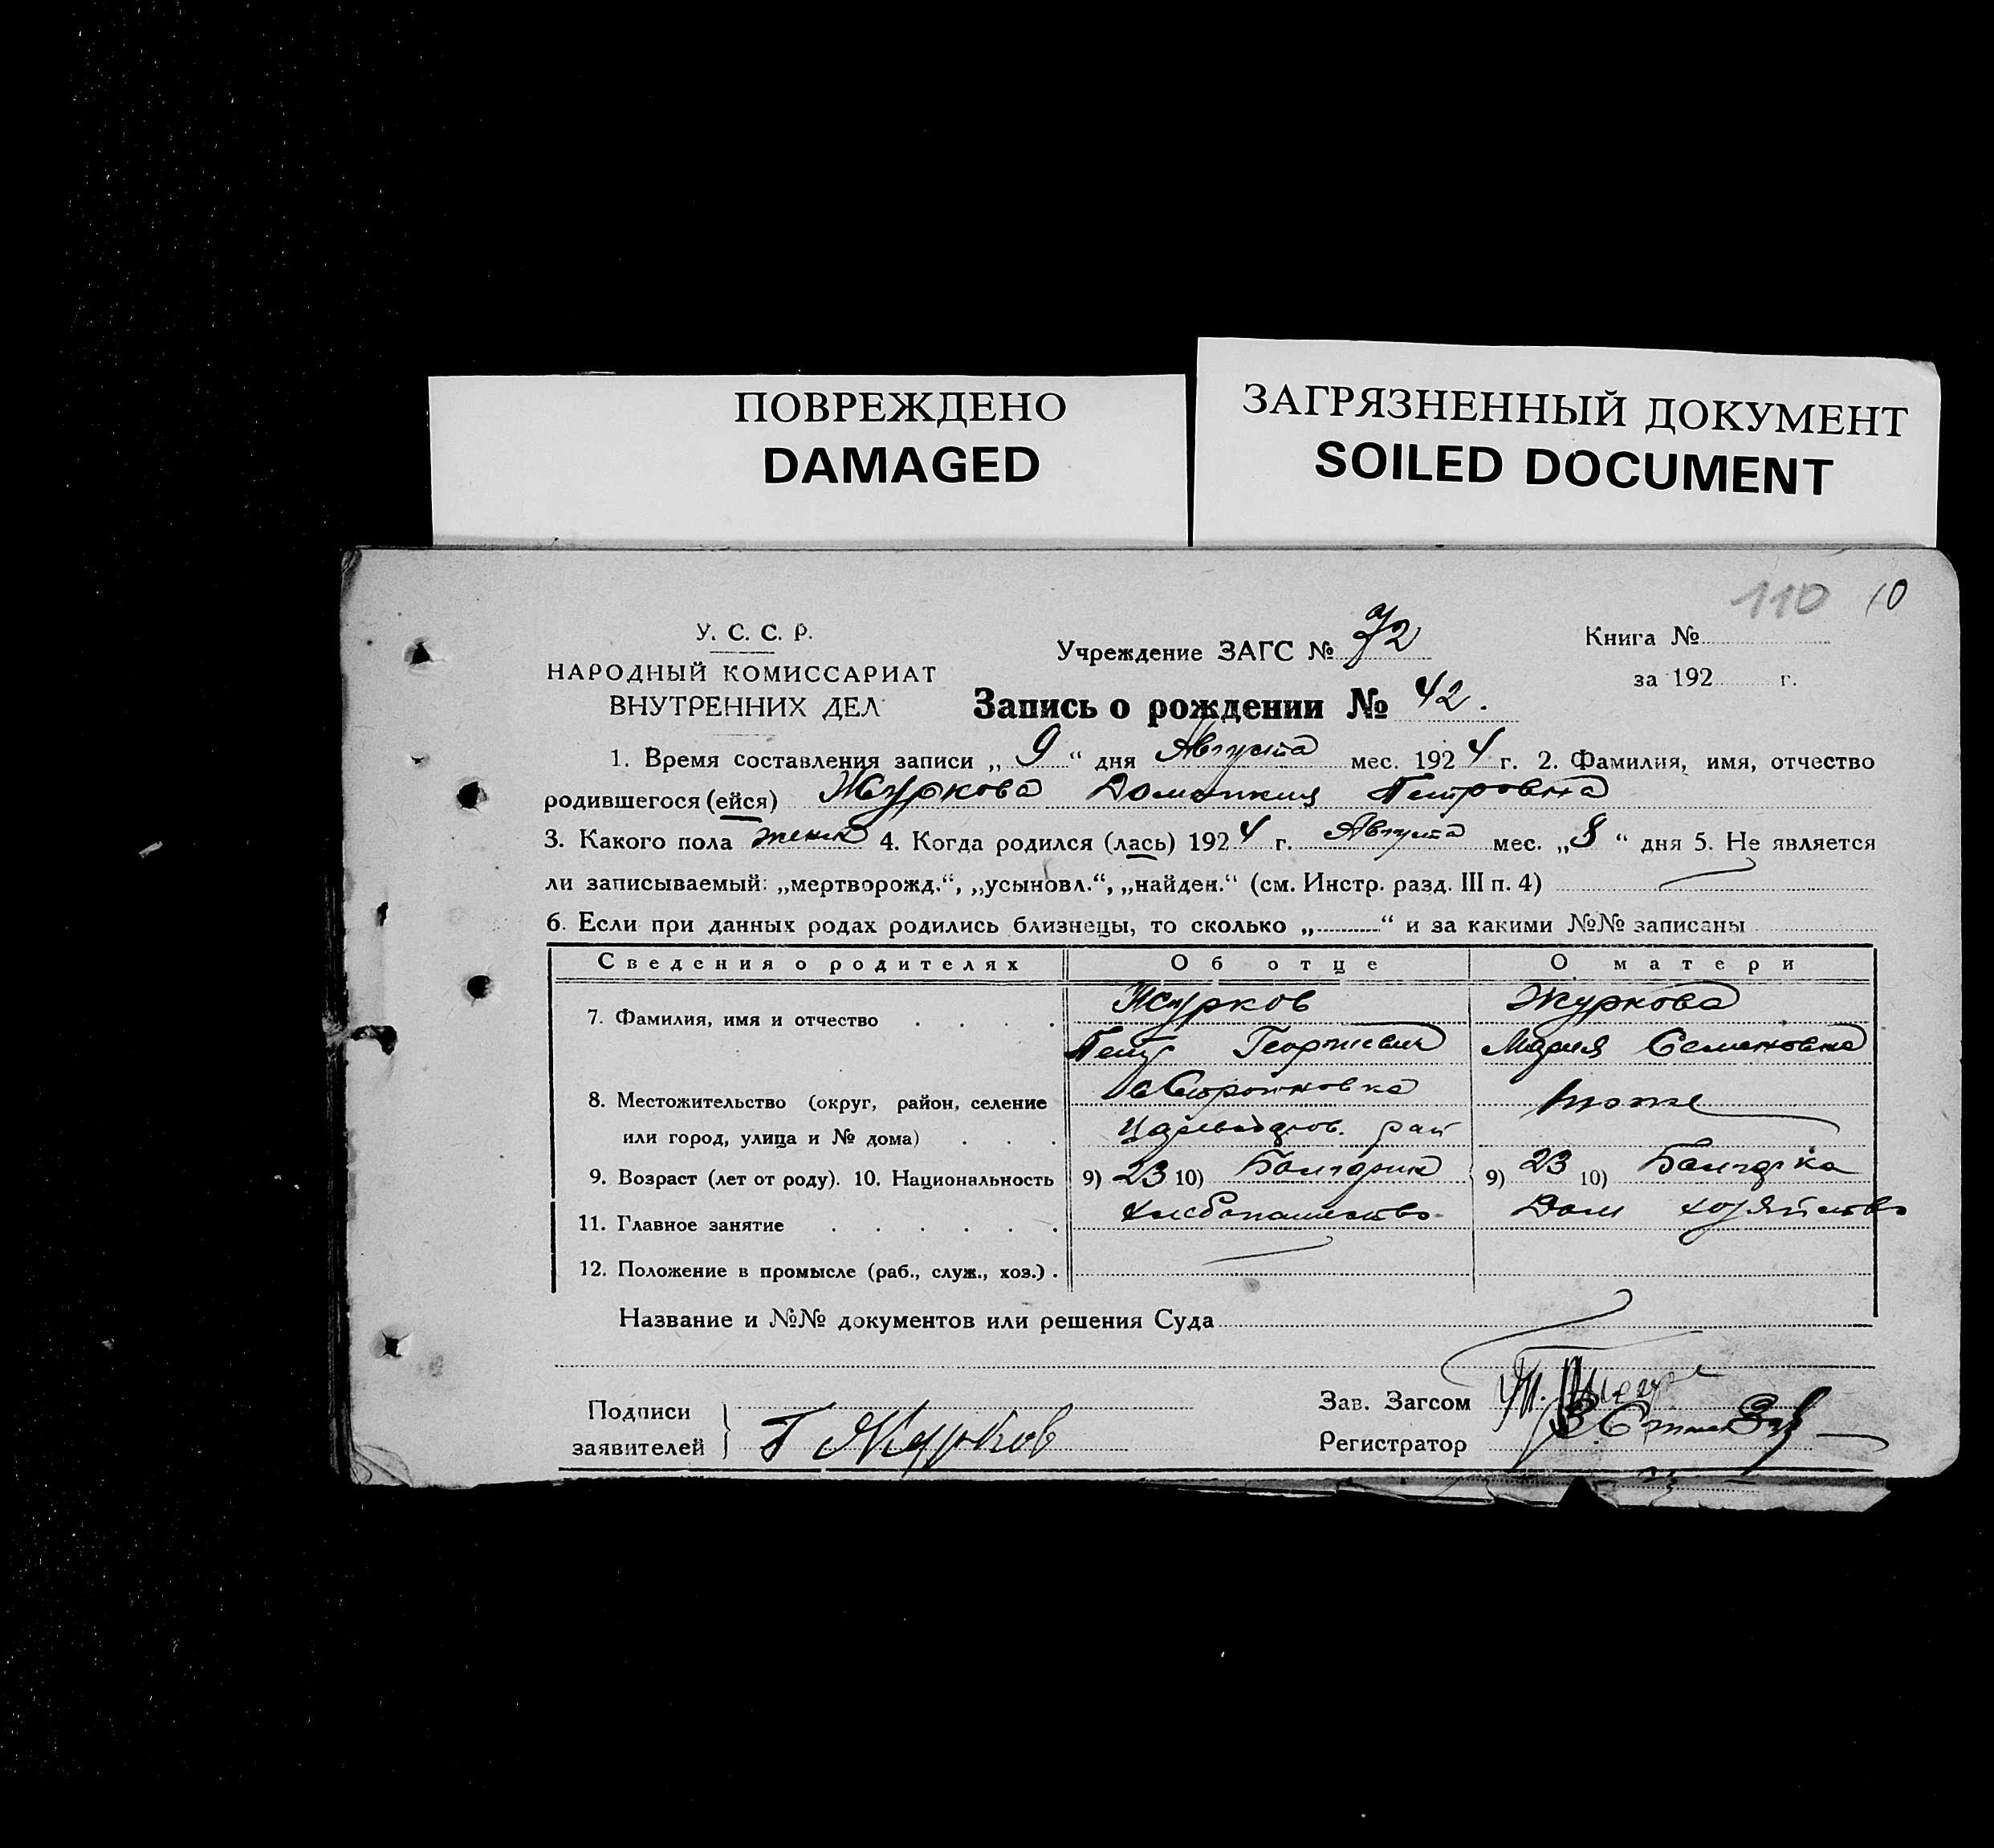 ПОВРЕЖДЕНО
DAMAGED
ЗАГРЯЗНЕННЫЙ ДОКУМЕНТ
SOILED DOCUMENT
110 10
У. С. С. Р.
НАРОДНЫЙ КОМИССАРИАТ
ВНУТРЕННИХ ДЕЛ
Учреждение ЗАГС №
Книга №
за 192 г.
Запись о рождении № 42.
1. Время составления записи „ 9 “ дня Августа мес. 1924 г. 2. Фамилия, имя, отчество
родившегося (ейся) Журкова Домникия Петровна
3. Какого пола женск 4. Когда родился (лась) 1924 г. Августа мес. „8“ дня 5. Не является
ли записываемый: „мертворожд.“, „усыновл.“, „найден.“ (см. Инстр. разд. III п. 4)
6. Если при данных родах родились близнецы, то сколько „..........“ и за какими №№ записаны
Сведения о родителях Об отце О матери
7. Фамилия, имя и отчество . . . . Журков Журкова
Петр Георгиевич Мария Семеновна
8. Местожительство (округ, район, селение с Строгоновка тоже
или город, улица и № дома) . . . рай
9. Возраст (лет от роду). 10. Национальность 9) 23 10) Болгарин 9) 23 10) Болгарка
11. Главное занятие . . . . . . Хлебопашество Дом хозяйство
12. Положение в промысле (раб., служ., хоз.) .
Название и №№ документов или решения Суда
Подписи
заявителей П Журков
Зав. Загсом
Регистратор